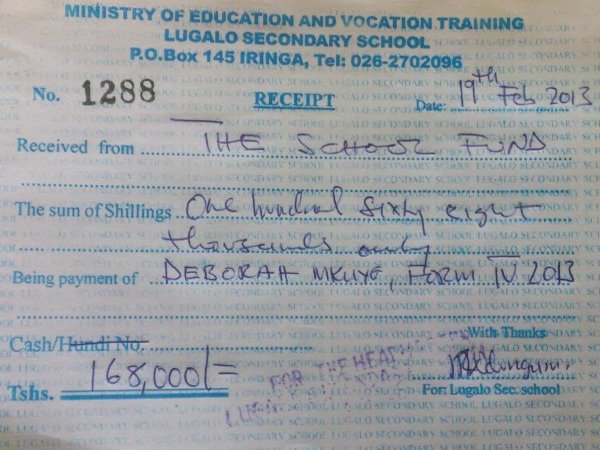 MINISTRY OF EDUCATION AND VOCATION TRAINING
LUGALO SECONDARY SCHOOL
P.O.Box 145 IRINGA, Tel: 026-2702096
No. 1288 RECEIPT Date: 19th Feb 2013
Received from THE SCHOOL FUND
The sum of Shillings One hundred sixty eight
thousands only
Being payment of DEBORAH MKUYE, FORM IV 2013
Cash/Hundi No. With Thanks
Tshs. 168,000/= For: Lugalo Sec. school
FOR THE HEAD